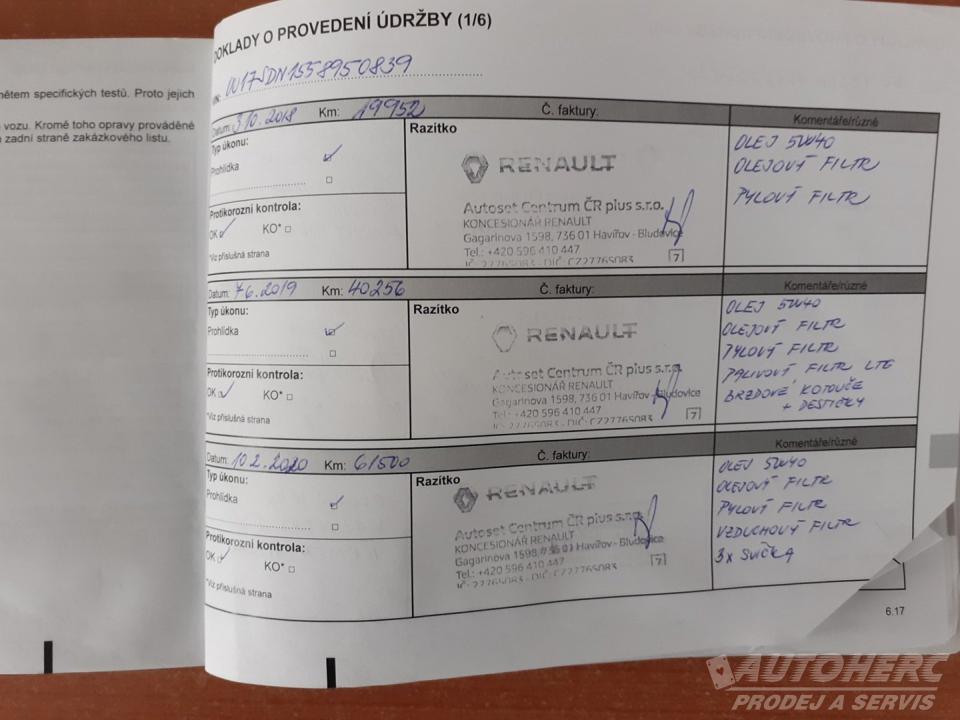 mětem specifických testů. Proto jejich
vozu. Kromě toho opravy prováděné
zadní straně zakázkového listu.
DOKLADY O PROVEDENÍ ÚDRŽBY (1/6)
Datum: 3.10.2018 Km: 19952 Č. faktury: Komentáře/různé
Typ úkonu:
Prohlídka
Protikorozní kontrola:
OK KO*
*Viz příslušná strana
Razítko
RENAULT
Autoset Centrum ČR plus s.r.o.
KONCESIONÁŘ RENAULT
Gagarinova 1598, 736 01 Havířov - Bludovice
Tel.: +420 596 410 447
IČ: 27765083 - DIČ: CZ27765083
7
OLEJ 5W40
OLEJOVÝ FILTR
PYLOVÝ FILTR
Datum: 7.6.2019 Km: 40256 Č. faktury: Komentáře/různé
Typ úkonu:
Prohlídka
Protikorozní kontrola:
OK KO*
*Viz příslušná strana
Razítko
RENAULT
Autoset Centrum ČR plus s.r.o.
KONCESIONÁŘ RENAULT
Gagarinova 1598, 736 01 Havířov - Bludovice
Tel.: +420 596 410 447
IČ: 27765083 - DIČ: CZ27765083
7
OLEJ 5W40
OLEJOVÝ FILTR
PYLOVÝ FILTR
PALIVOVÝ FILTR LTG
BRZDOVÉ KOTOUČE
+ DESTIČKY
Datum: 10.2.2020 Km: 61500 Č. faktury: Komentáře/různé
Typ úkonu:
Prohlídka
Protikorozní kontrola:
OK KO*
*Viz příslušná strana
Razítko
RENAULT
Autoset Centrum ČR plus s.r.o.
KONCESIONÁŘ RENAULT
Gagarinova 1598, 736 01 Havířov - Bludovice
Tel.: +420 596 410 447
IČ: 27765083 - DIČ: CZ27765083
7
OLEJ 5W40
OLEJOVÝ FILTR
PYLOVÝ FILTR
VZDUCHOVÝ FILTR
3x SVÍČKA
6.17
AUTOHERC
PRODEJ A SERVIS